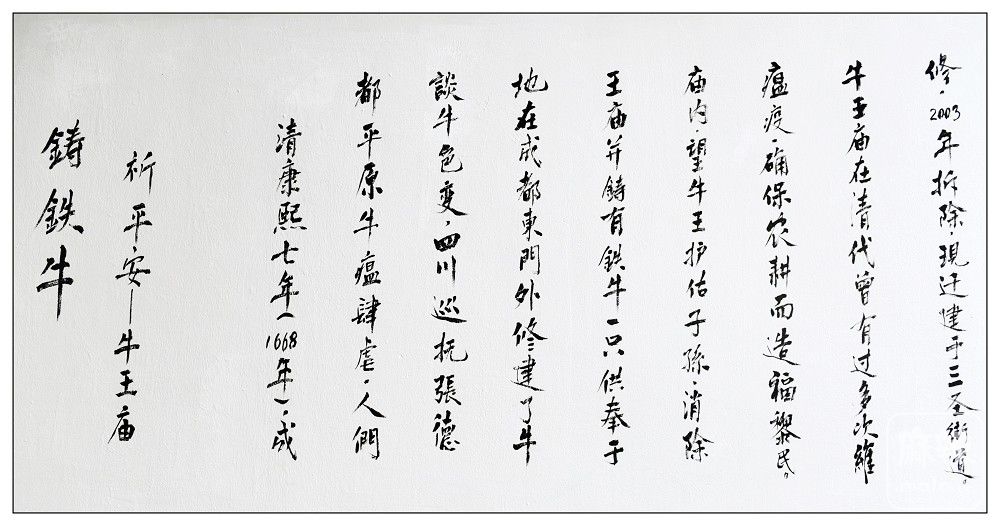 鑄鉄牛
祈平安—牛王庙
清康熙七年（1668年），成
都平原牛瘟肆虐，人們
談牛色變，四川巡抚張德
地在成都東門外修建了牛
王庙并鑄有鉄牛一只供奉于
庙内，望牛王护佑子孫，消除
瘟疫，确保农耕而造福黎民。
牛王庙在清代曾有过多次維
修，2003年拆除，現迁建于三圣街道。